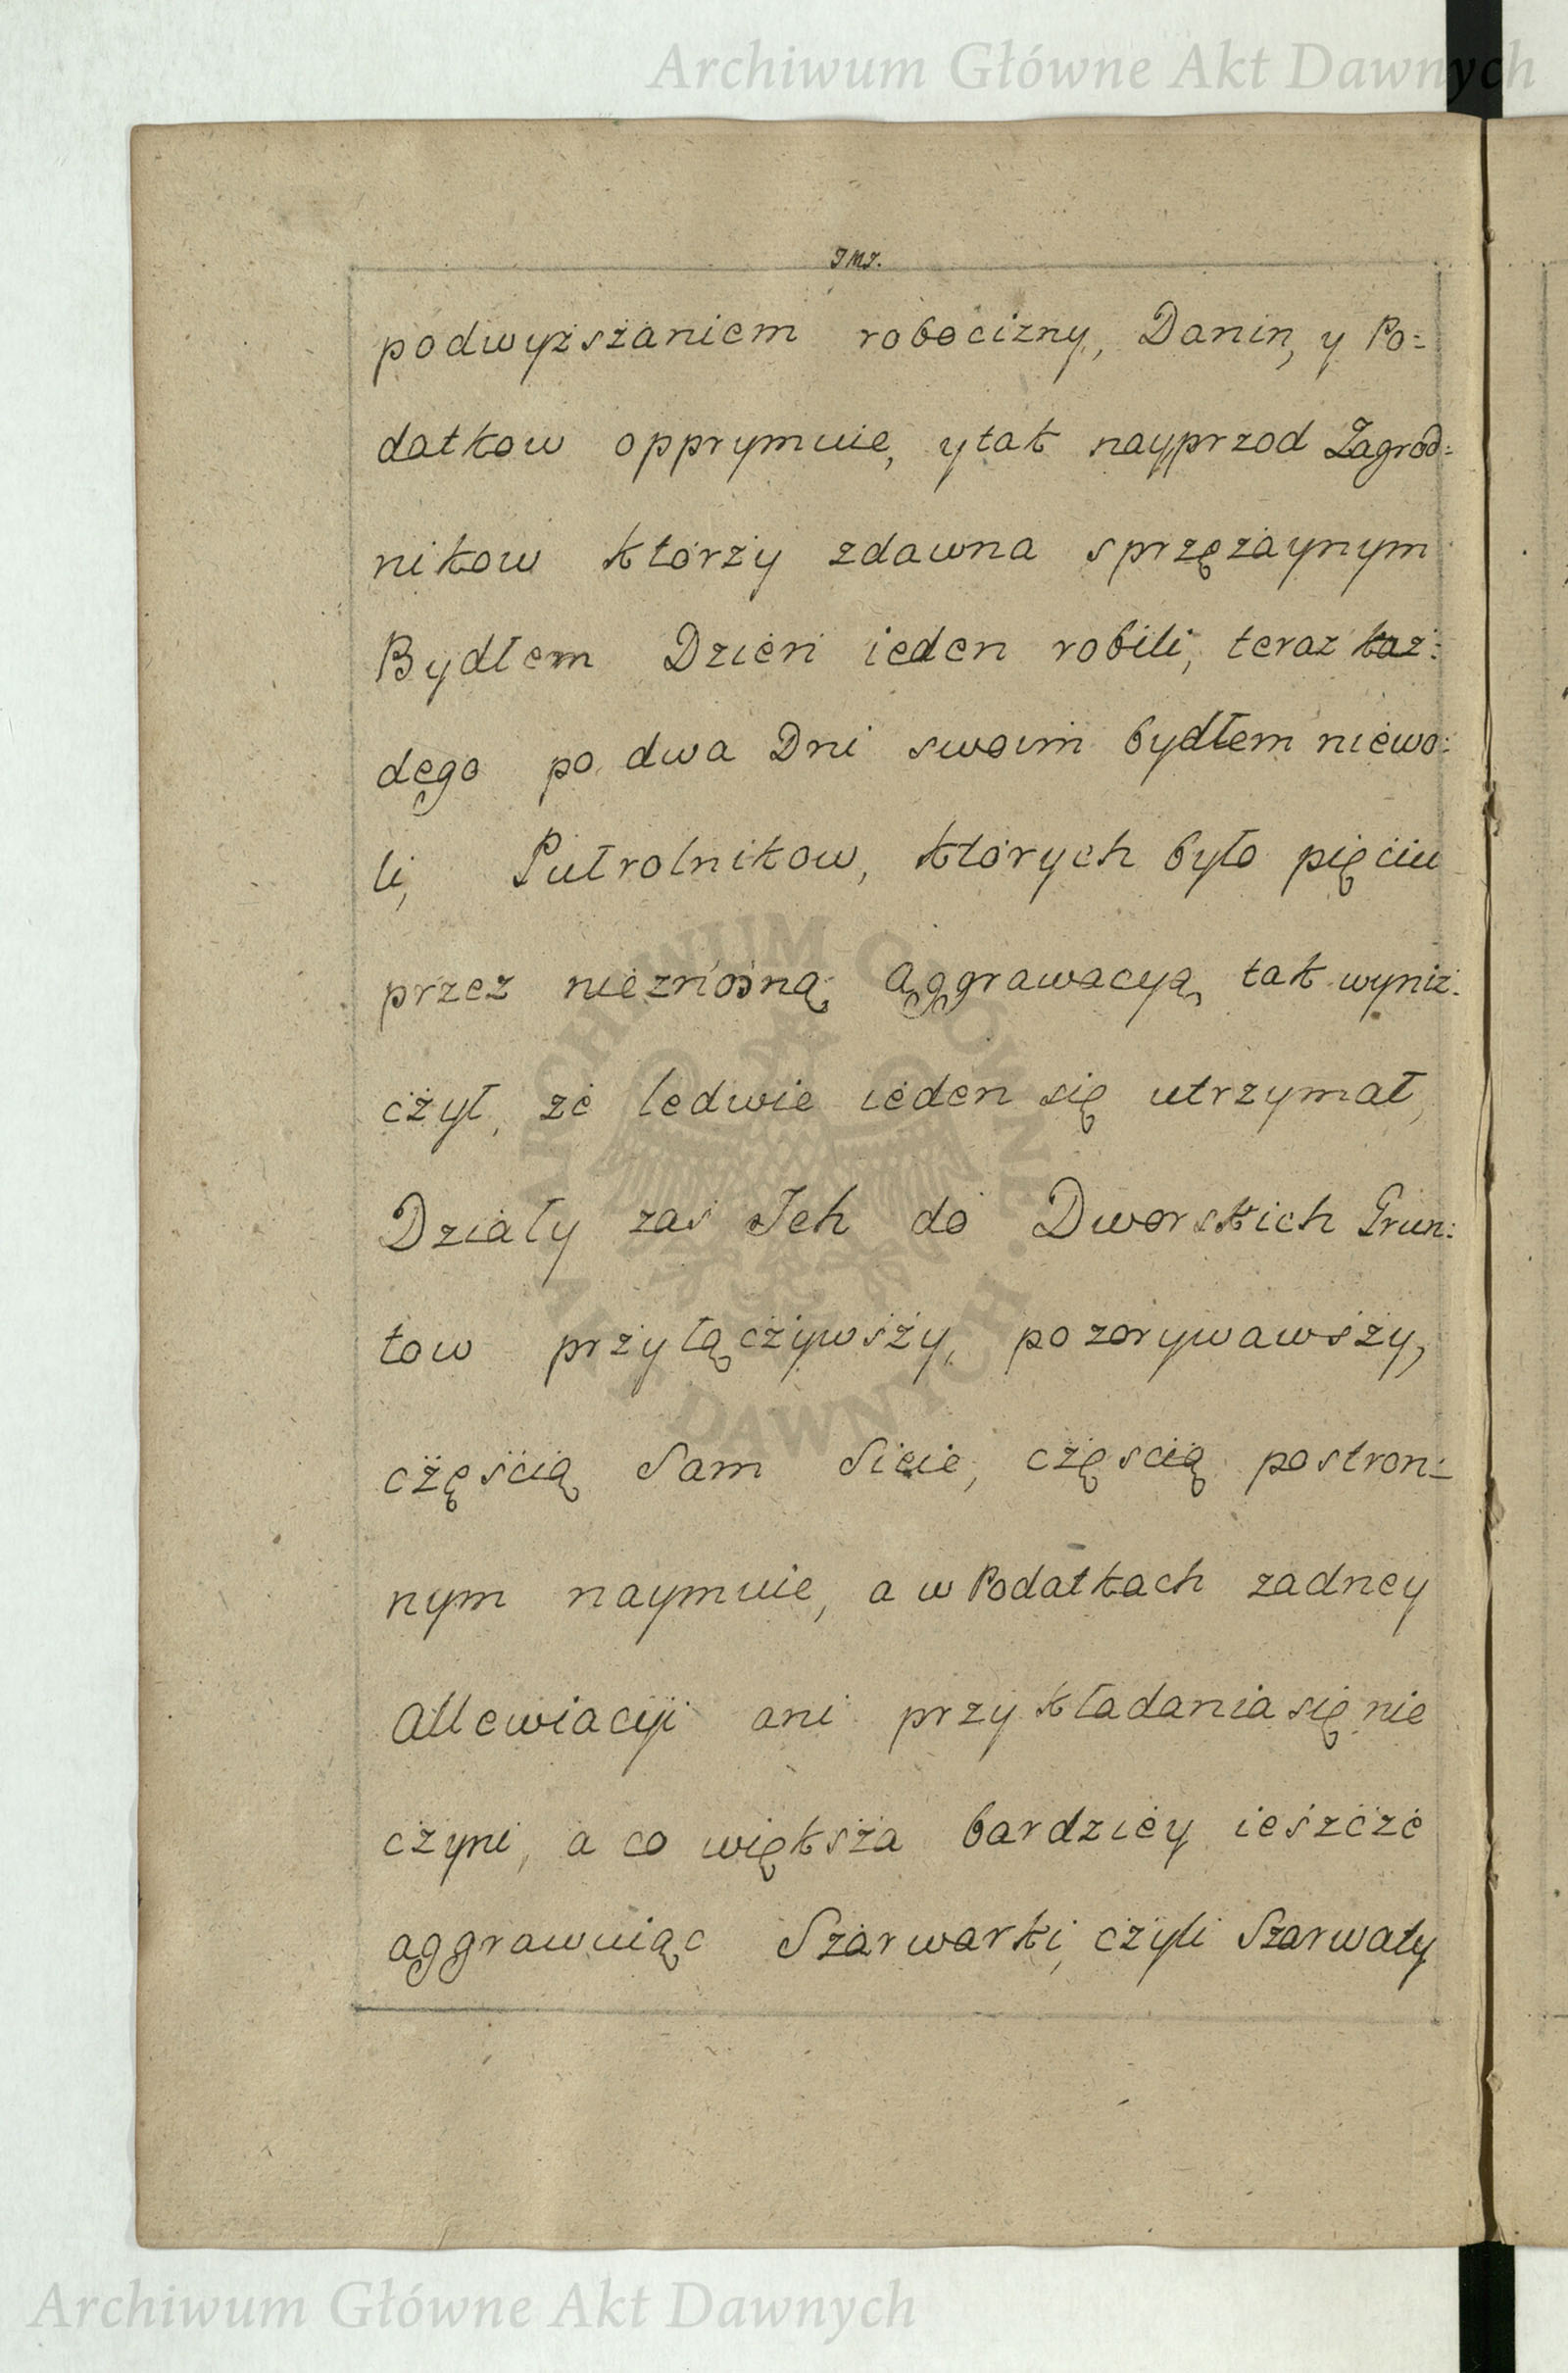 Archiwum Główne Akt Dawnych
JMJ.
podwyższaniem robocizny, Danin, y Po=
datkow opprymuie, y tak nayprzod Zagrod=
nikow ktorzy zdawna sprzężaynym
Bydłem Dzień ieden robili, teraz każ=
dego po dwa Dni swoim bydłem niewo=
li, Pułrolnikow, ktorych było pięciu
przez nieznośną aggrawacyą tak wyniż=
czył, że ledwie ieden się utrzymał,
Działy zaś Ich do Dworskich Grun=
tow przyłączywszy, pozorywawszy,
częścią Sam Sieie, częścią postron=
nym naymuie, a w Podatkach żadney
Allewiacyi ani przykładania się nie
czyni, a co większa bardziey ieszcze
aggrawuiąc Szarwarki, czyli Szarwały
ARCHIWUM GŁÓWNE AKT DAWNYCH
Archiwum Główne Akt Dawnych